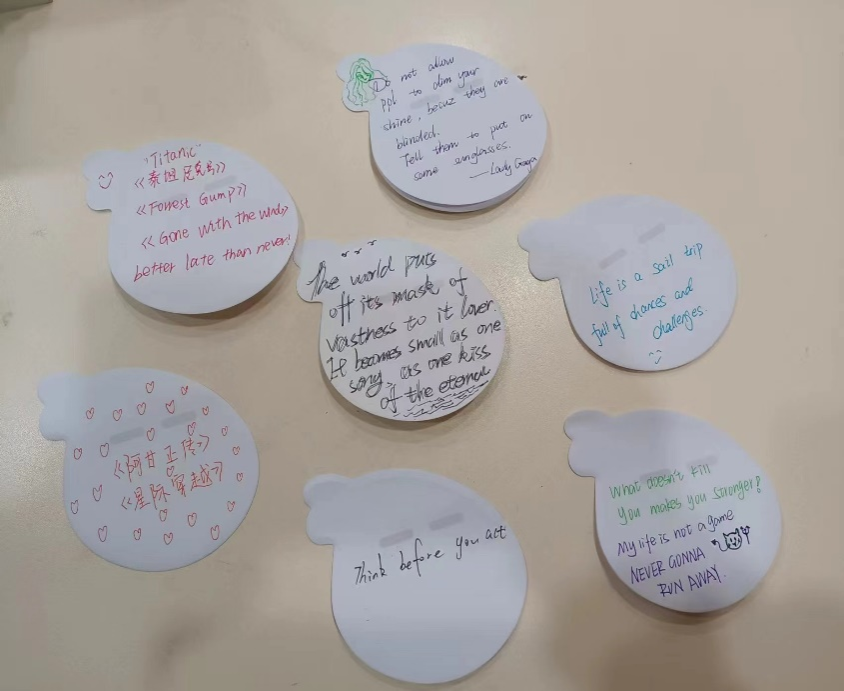 Do not allow
ppl to dim your
shine, becuz they are
blinded.
Tell them to put on
some sunglasses.
—Lady Gaga
"Titanic"
《泰坦尼克号》
《Forrest Gump》
《Gone with the wind》
better late than never!
The world puts
off its mask of
vastness to it lover.
It becomes small as one
song, as one kiss
of the eternal
Life is a sail trip
full of chances and
challenges.
《阿甘正传》
《星际穿越》
Think before you act
What doesn't kill
you makes you stronger!
My life is not a game
NEVER GONNA
RUN AWAY.